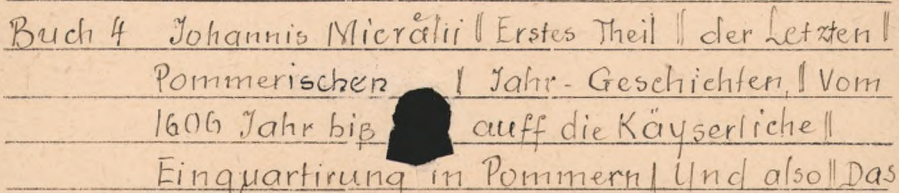 Buch 4 Johannis Micrälii || Erstes Theil || der Letzten ||
Pommerischen || Jahr-Geschichten, || Vom
1606 Jahr biß auff die Käyserliche ||
Einquartirung in Pommern / Und also || Das